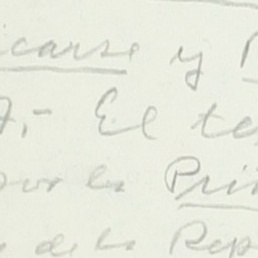 icarse y
7.- El te
por la Pri
de la Rep